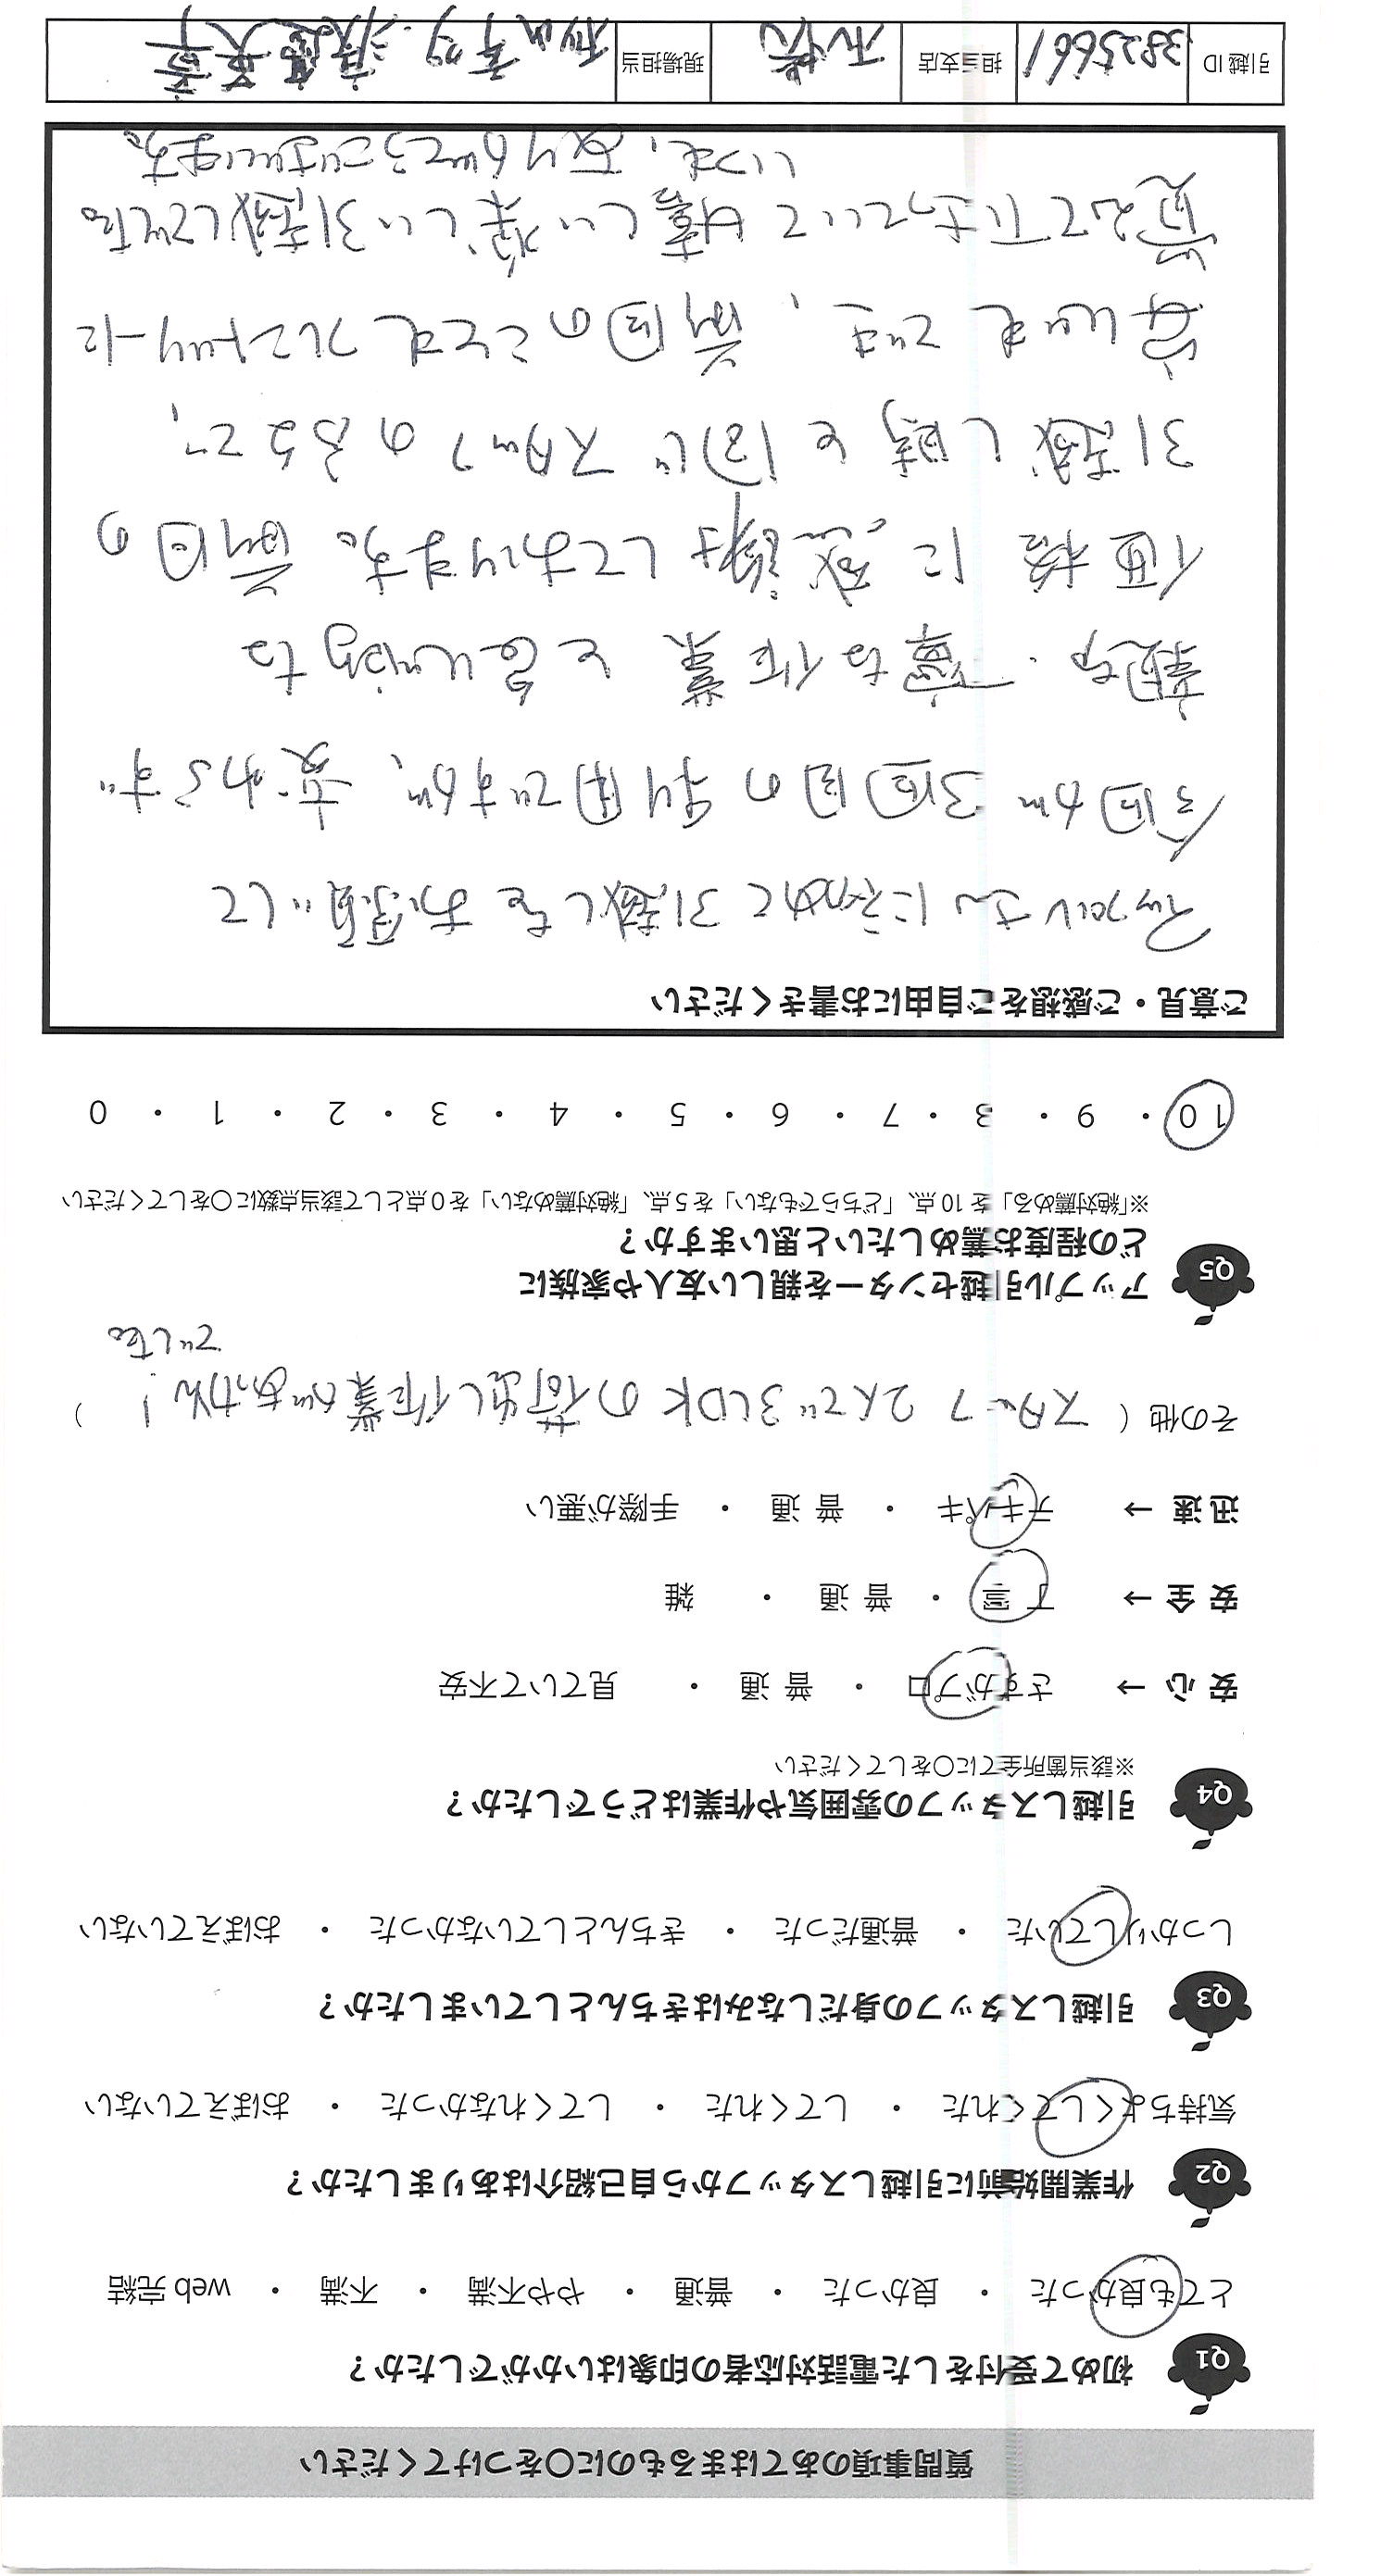 質問事項のあてはまるものに○をつけてください
Q1 初めて受付をした電話対応者の印象はいかがでしたか？
とても良かった ・ 良かった ・ 普通 ・ やや不満 ・ 不満 ・ web 完結
Q2 作業開始前に引越しスタッフから自己紹介はありましたか？
気持ちよくしてくれた ・ してくれた ・ してくれなかった ・ おぼえていない
Q3 引越しスタッフの身だしなみはきちんとしていましたか？
しっかりしていた ・ 普通だった ・ きちんとしていなかった ・ おぼえていない
Q4 引越しスタッフの雰囲気や作業はどうでしたか？
※該当箇所全てに○をしてください
安 心 → さすがプロ ・ 普 通 ・ 見ていて不安
安 全 → 丁 寧 ・ 普 通 ・ 雑
迅 速 → テキパキ ・ 普 通 ・ 手際が悪い
その他 ( スタッフ 2人で 3LDK の荷出し作業があっかん！ )
でした。
Q5 アップル引越センターを親しい友人や家族に
どの程度お薦めしたいと思いますか？
※「絶対薦める」を 10 点、「どちらでもない」を 5 点、「絶対薦めない」を 0 点として該当点数に○をしてください
10 ・ 9 ・ 8 ・ 7 ・ 6 ・ 5 ・ 4 ・ 3 ・ 2 ・ 1 ・ 0
ご意見・ご感想をご自由にお書きください
アップルさんに初めて引越しをお願いして
今回が 3回目の利用ですが、変わらず
親切・丁寧な作業と良心的な
価格に感謝しております。前回の
引越し時と同じスタッフの方まで、
前回のことをフレンドリーに
覚えて下さっていて嬉しい楽しい引越しでした。
いつも、ありがとうございます。
引越 ID 3825661 担当支店 現場担当